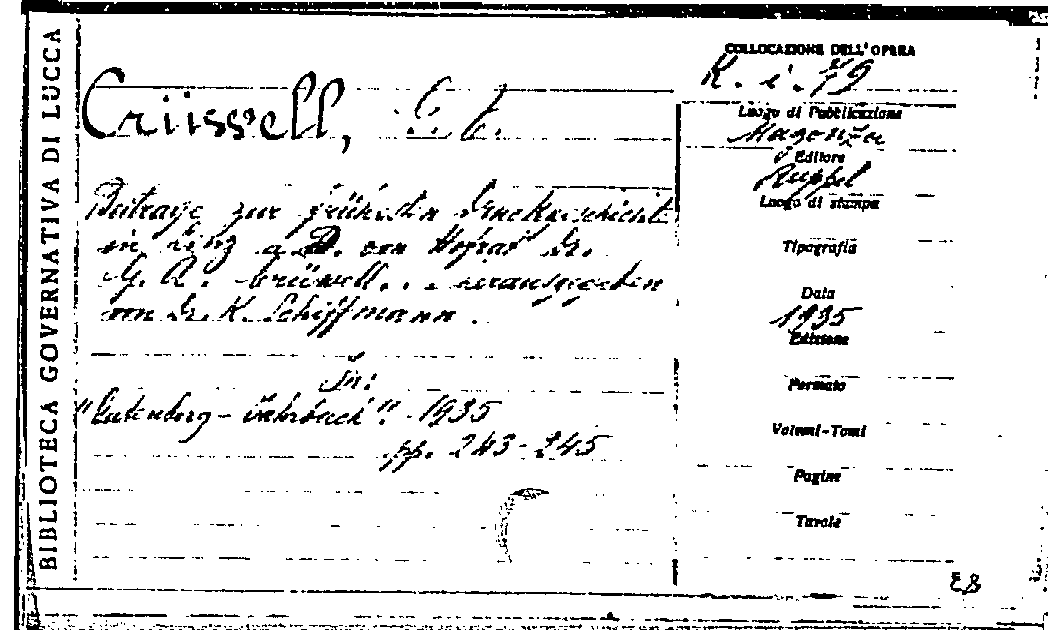 BIBLIOTECA GOVERNATIVA DI LUCCA
Crüssell, G. A.
Beiträge zur frühesten Druckgeschichte
in Linz a. D. von Hofrat Dr.
G. A. Crüwell... herausgegeben
von Dr. K. Schiffmann.
In:
"Gutenberg-Jahrbuch". 1935
pp. 243-245
COLLOCAZIONE DELL'OPERA
R. i. 79
Luogo di Pubblicazione
Magonza
Editore
Ruppel
Luogo di stampa
Tipografia
Data
1935
Edizione
Formato
Volumi-Tomi
Pagine
Tavole